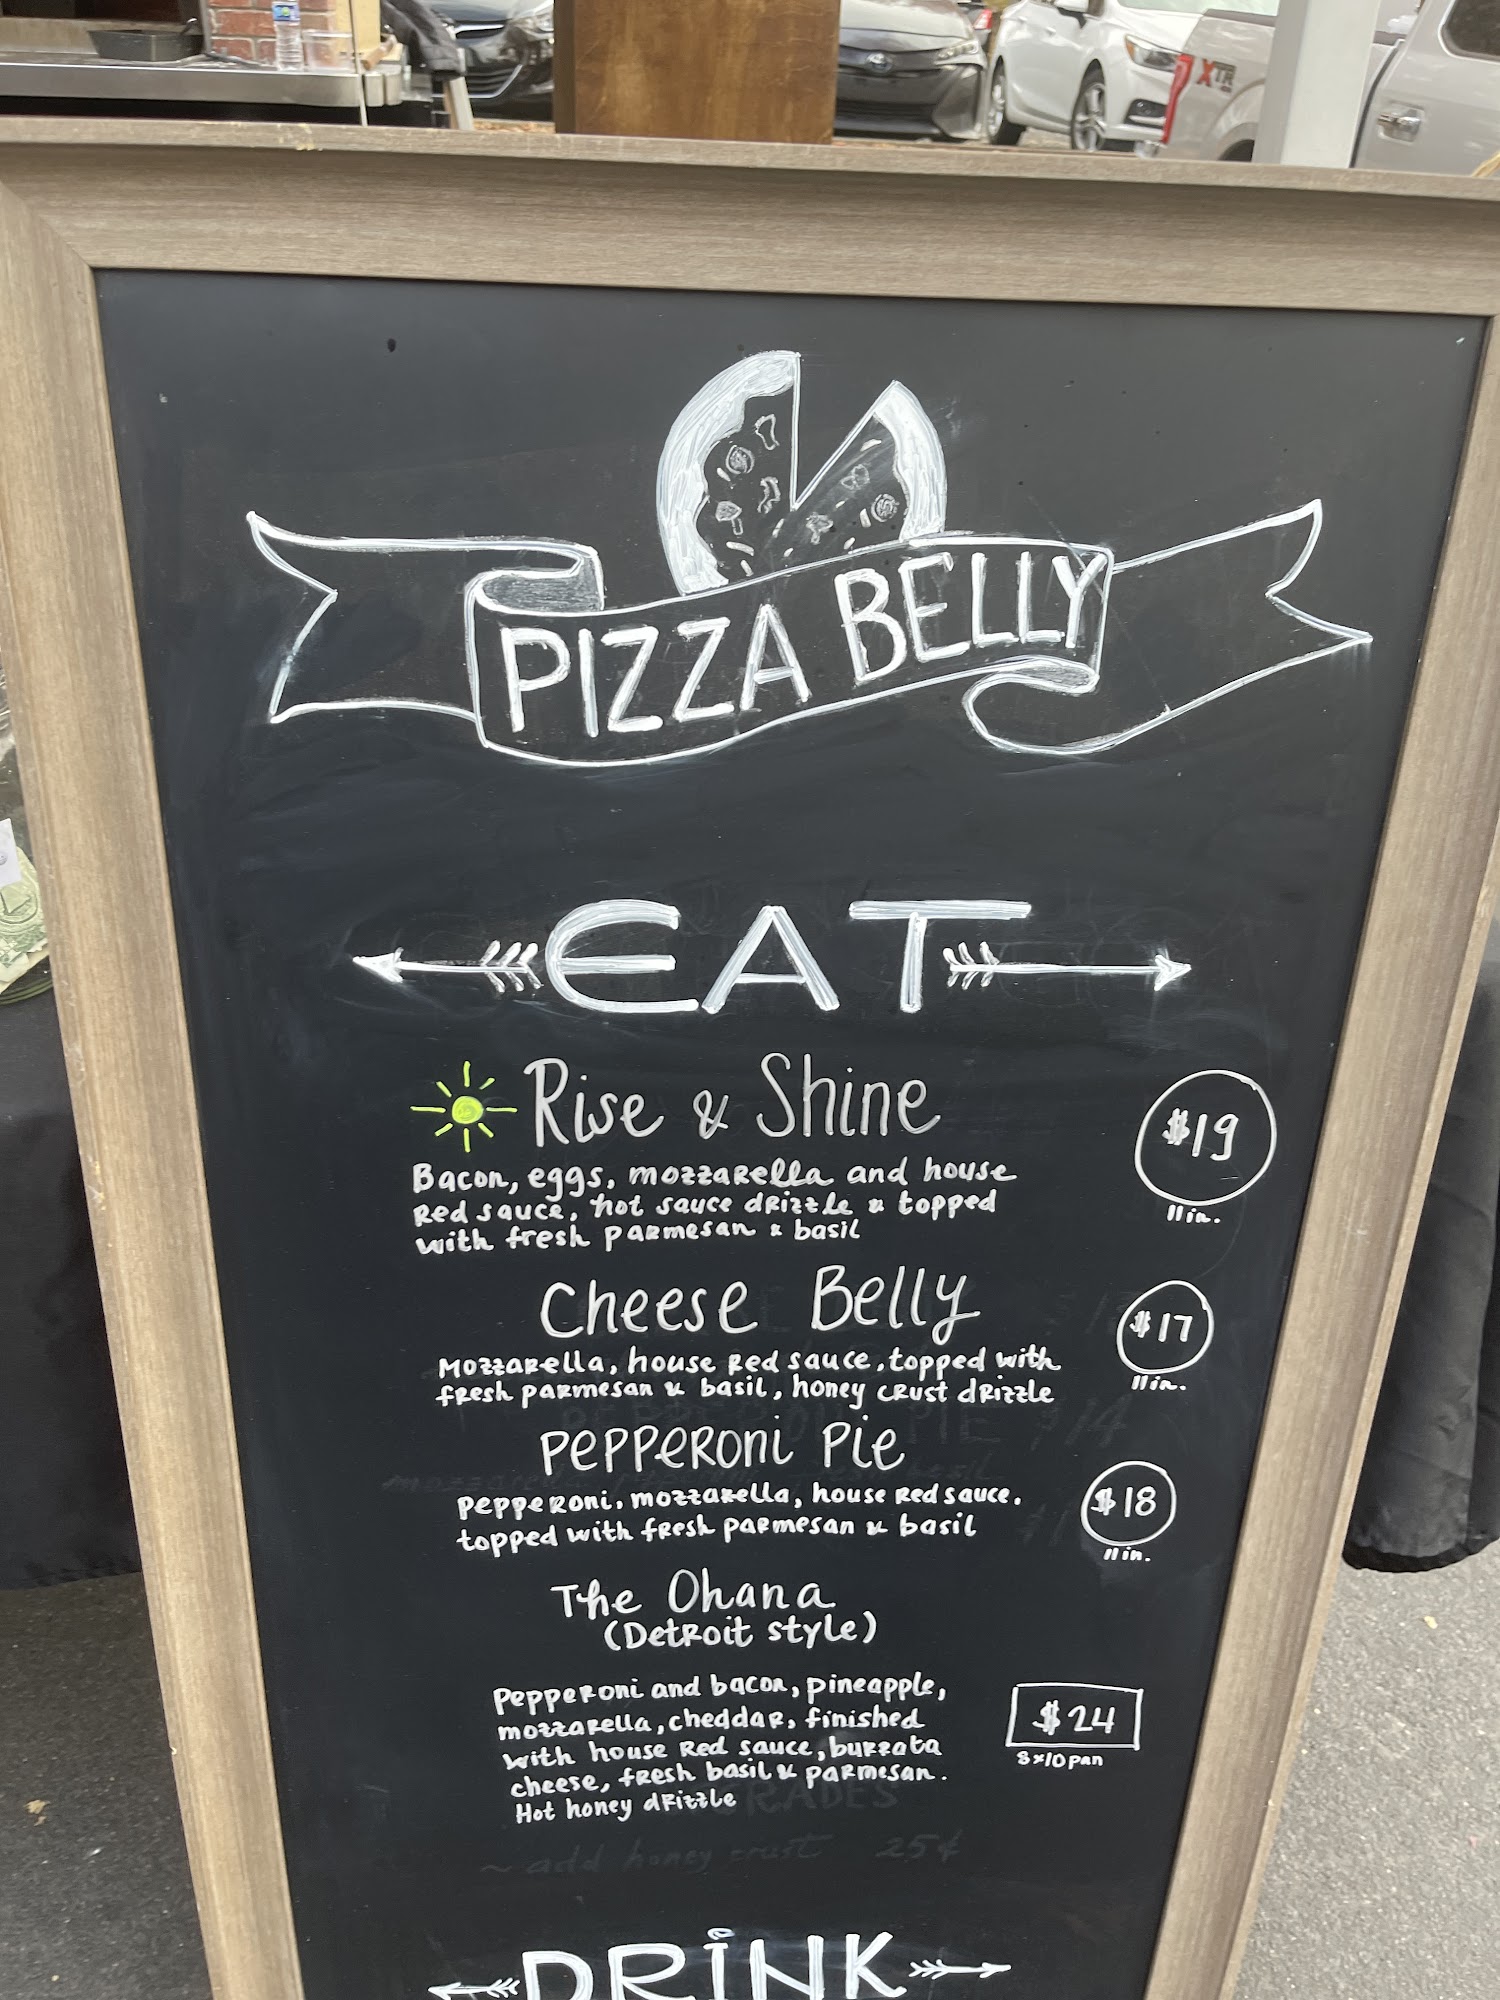 XTR
PIZZA BELLY
EAT
Rise & Shine
$19
11in.
Bacon, eggs, mozzarella and house
Red sauce, hot sauce drizzle & topped
with fresh parmesan & basil
Cheese Belly
$17
11in.
Mozzarella, house Red sauce, topped with
fresh parmesan & basil, honey crust drizzle
Pepperoni Pie
$18
11in.
Pepperoni, mozzarella, house Red sauce,
topped with fresh parmesan & basil
The Ohana
(Detroit style)
Pepperoni and bacon, pineapple,
mozzarella, cheddar, finished
with house Red sauce, burrata
cheese, fresh basil & parmesan.
Hot honey drizzle
$24
8x10 pan
~ add honey crust 25¢
DRINK